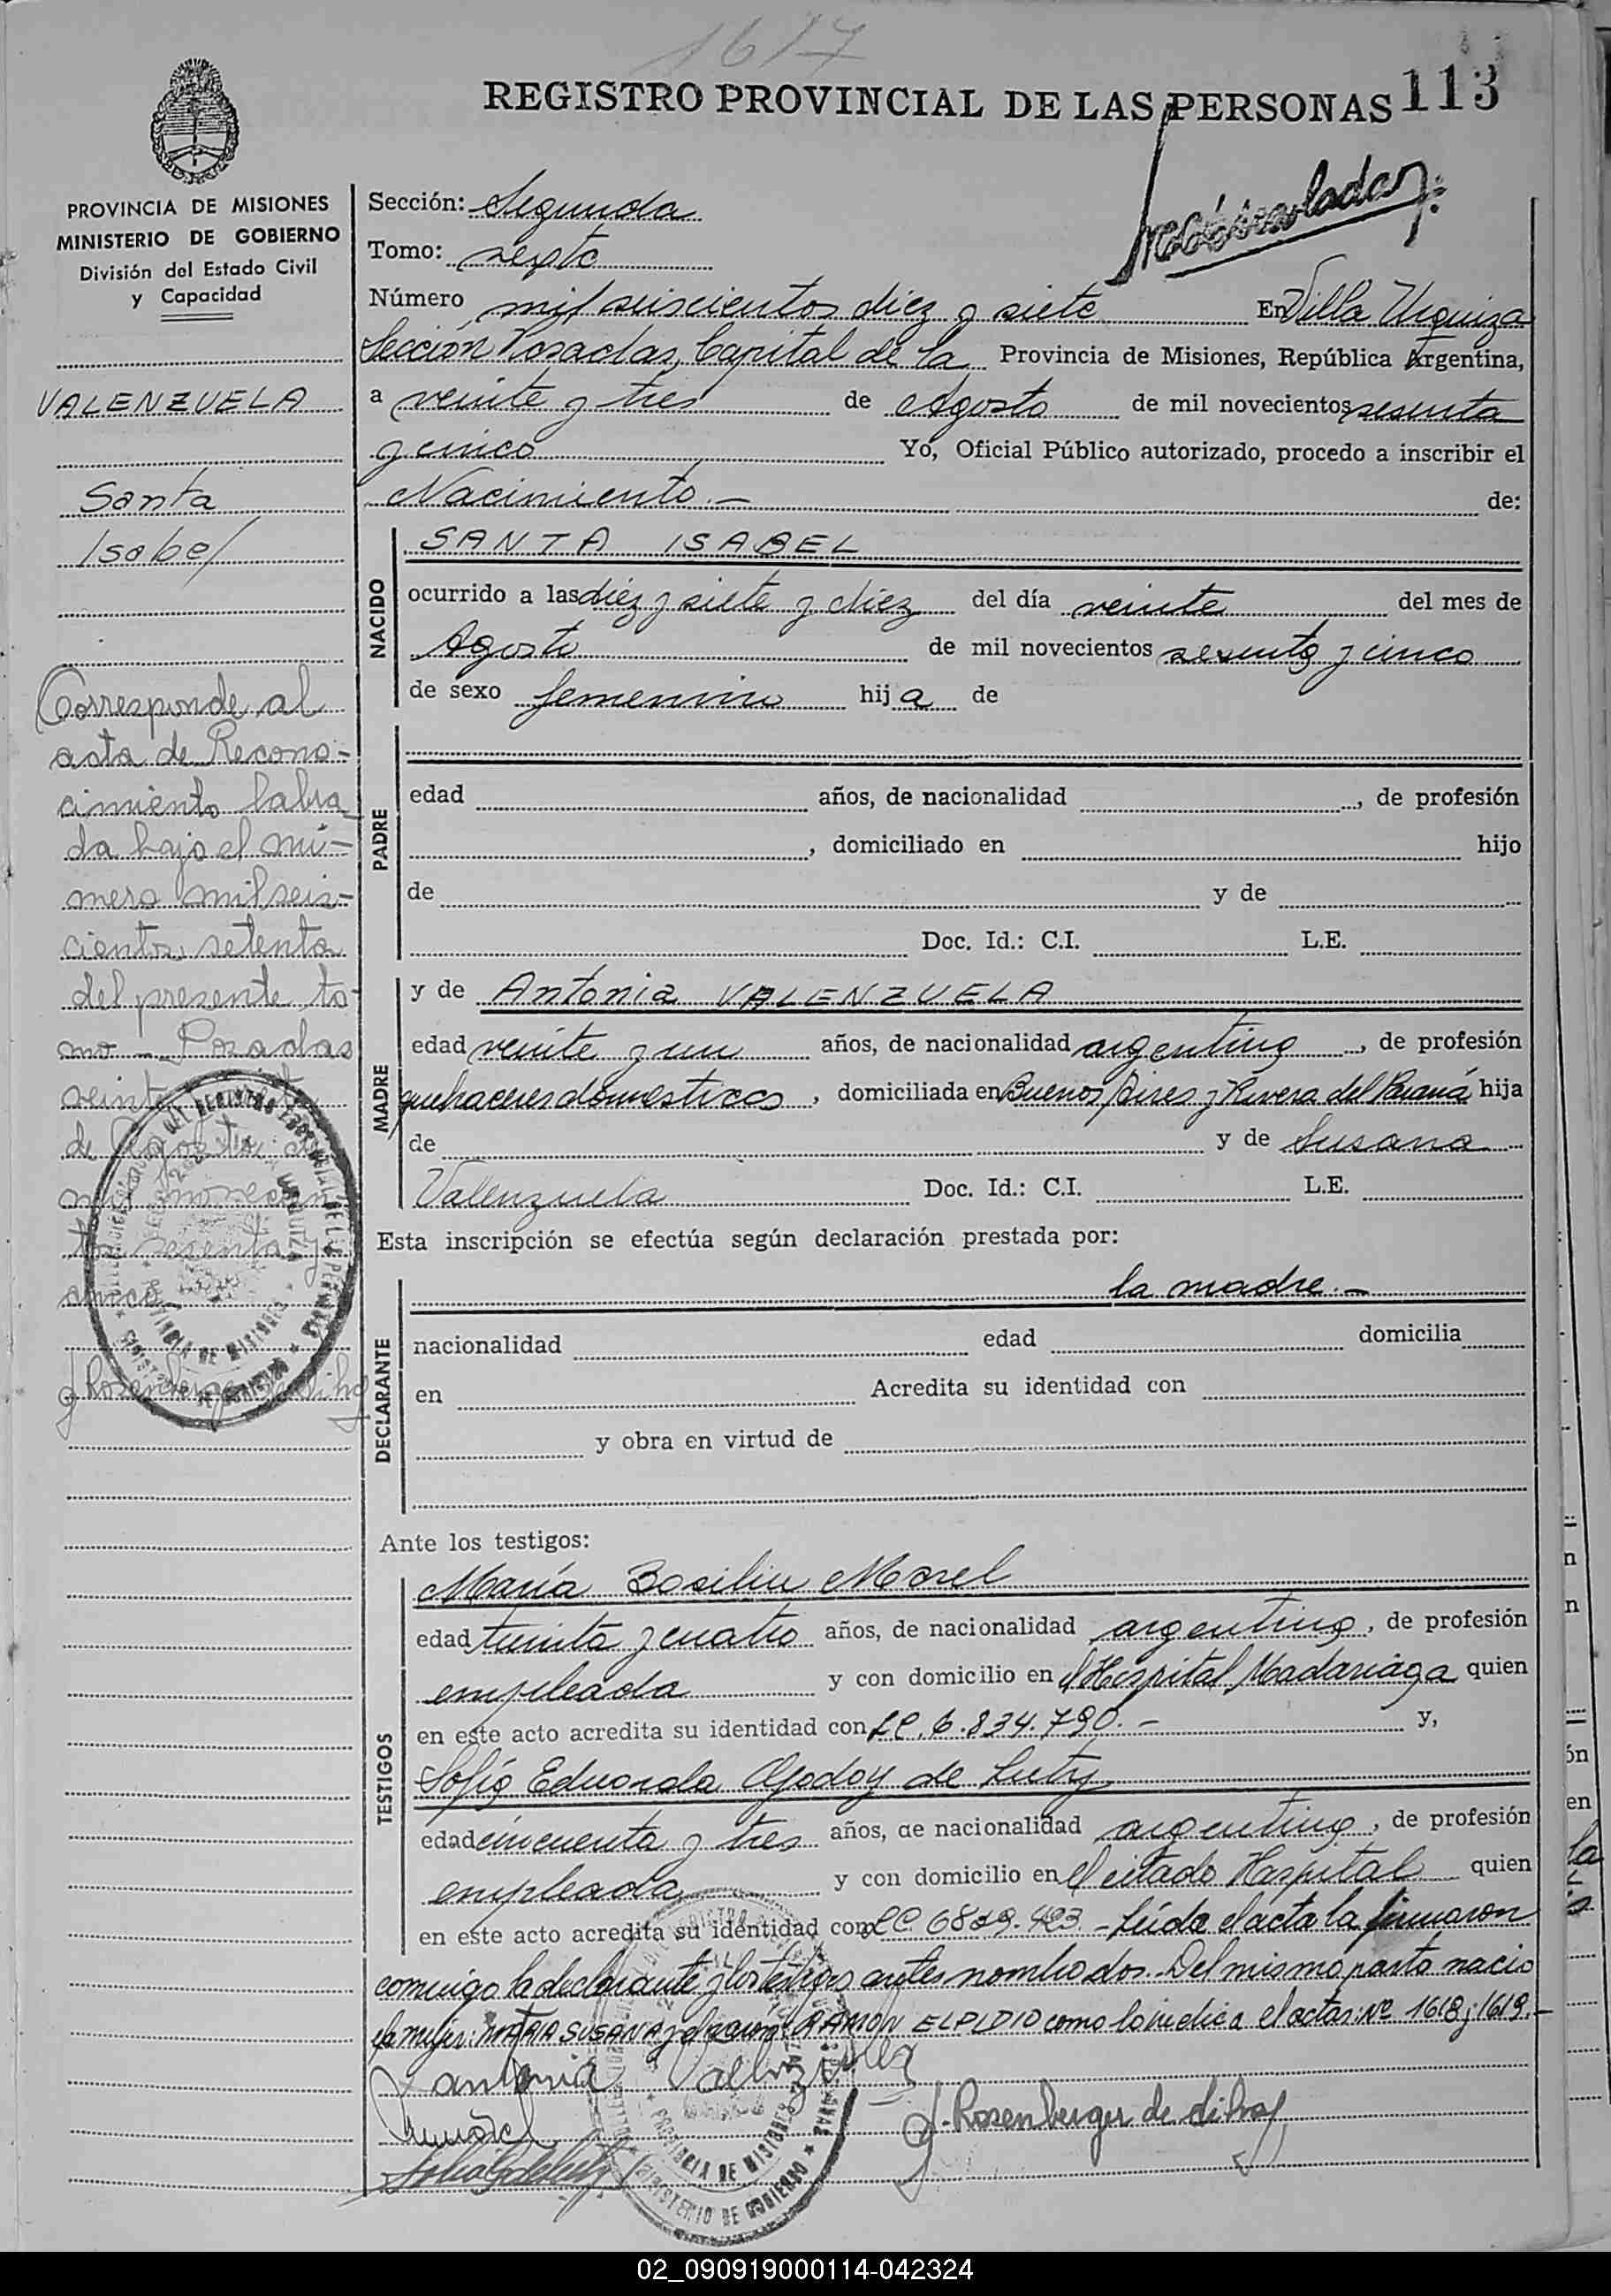 1617
REGISTRO PROVINCIAL DE LAS PERSONAS 113
PROVINCIA DE MISIONES
MINISTERIO DE GOBIERNO
División del Estado Civil
y Capacidad
VALENZUELA
Santa
Isabel
Corresponde al
acta de Recono-
cimiento labra
da bajo el nú-
mero mil seis-
cientos setenta
del presente to-
mo - Posadas
veinti
de Agosto de
mil novecien
tos sesenta y
cinco
Sección: Segunda
Tomo: sexto
Número mil seiscientos diez y siete En Villa Urquiza
Sección Posadas, Capital de la Provincia de Misiones, República Argentina,
a veinte y tres de Agosto de mil novecientos sesenta
y cinco Yo, Oficial Público autorizado, procedo a inscribir el
Nacimiento.- de:
NACIDO
SANTA ISABEL
ocurrido a las diéz y siete y diez del día veinte del mes de
Agosto de mil novecientos sesenta y cinco
de sexo femenino hija de
PADRE
edad años, de nacionalidad , de profesión
, domiciliado en hijo
de y de
Doc. Id.: C.I. L.E.
MADRE
y de Antonia VALENZUELA
edad veinte y un años, de nacionalidad argentina , de profesión
quehaceres domesticos , domiciliada en Buenos Aires y Rivera del Paraná hija
de y de Susana
Valenzuela Doc. Id.: C.I. L.E.
Esta inscripción se efectúa según declaración prestada por:
DECLARANTE
la madre.-
nacionalidad edad domicilia
en Acredita su identidad con
y obra en virtud de
Ante los testigos:
TESTIGOS
María Basilia Morel
edad treinta y cuatro años, de nacionalidad argentina, de profesión
empleada y con domicilio en el Hospital Madariaga quien
en este acto acredita su identidad con LC. 6.834.790.- y,
Sofía Eduarda Godoy de
edad cincuenta y tres años, de nacionalidad argentina, de profesión
empleada y con domicilio en el citado Hospital quien
en este acto acredita su identidad con LC 6819.423.- Leída el acta la firmaron
conmigo la declarante y los testigos antes nombrados.- Del mismo parto nacio
la mujer: MARIA SUSANA y el varón: RAMON ELPIDIO como lo indica el actas Nº 1618 y 1619.-
antonia Valenzuela
J. Rosenberger de
PROVINCIA DE MISIONES
MINISTERIO DE GOBIERNO
02_090919000114-042324